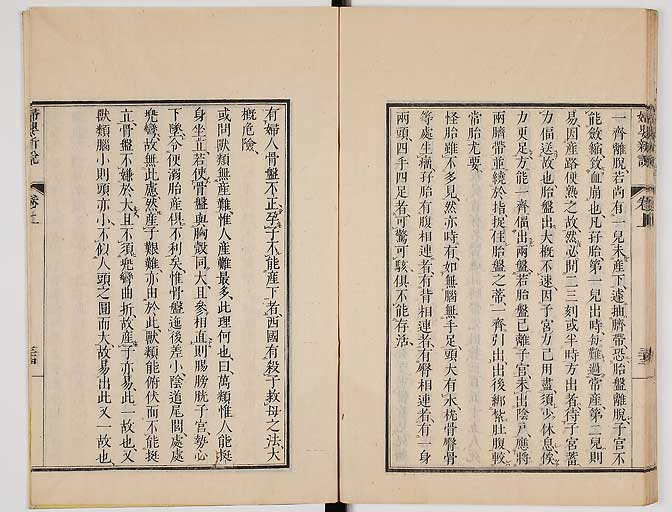 一齊離脫若尚有一兒未產下遽抽臍帶恐胎盤離脫子宮不
能斂縮致血崩也凡孖胎第一兒出時每難過常產第二兒則
易因產路便熟之故然必間二三刻或半時方出者待子宮蓄
力偪送故也胎盤出大概不速因子宮力已用盡須少休息候
力更足方能一齊偪出兩盤若胎盤已離子宮未出陰戶應將
兩臍帶並繞於指捉住胎盤之蒂一齊引出出後綁紮肚腹較
常胎尤要
怪胎雖不多見然亦時有如無腦無手足頭大有水枕骨臀骨
等處生癰孖胎有腹相連者有背相連者有臀相連者有一身
兩頭四手四足者可驚可駭俱不能存活
有婦人骨盤不正孕子不能產下者西國有殺子救母之法大
概危險
或問獸類無產難惟人產難最多此理何也曰萬類惟人能挺
身坐立若使骨盤與胸殼同大且參相直則腸膀胱子宮勢心
下墜令便溺胎產俱不利矣惟骨盤迤後差小陰道尾閭處處
兠彎故無此慮然產子艱難亦由於此獸類能俯伏而不能挺
立骨盤不嫌於大且不須兠彎曲折故產子亦易此一故也又
獸類腦小則頭亦小不似人頭之圓而大故易出此又一故也
婦嬰新說
卷上
婦嬰新說
卷上